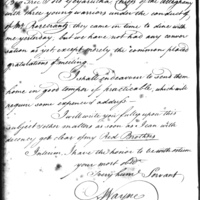 with three young warriors under the conduct
of Mr. Rosecrantz they came in time to dine with
me yesterday, but we have not had any conver-
sation as yet except merely the common place
gratulations of meeting.
I shall endeavour to send them
home in good temper if practicable, which will
require some expence & address—
I will write you fully upon this
subject & other matters as soon as I can with
decency get shut of my Red Brothers.
Interim I have the honor to be with esteem
your most obt.
& very hum Servant
Wayne